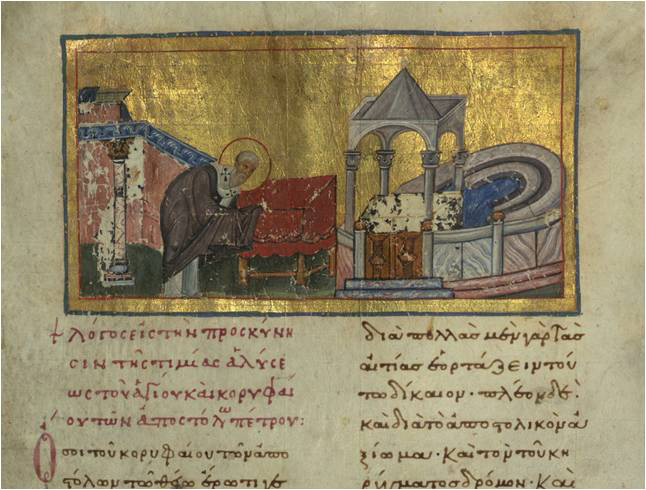 + λόγος εἰς τὴν προσκύνη
σιν τῆς τιμίας ἁλύσε
ως τοῦ ἁγίου καὶ κορυφαί
ου τῶν ἀποστόλω πέτρου:
Ὅσοι τοῦ κορυφαίου τῶν ἀπο
στόλων
διὰ πολλὰς μὲν γὰρ τὰς
αἰτίας ἑορτάζειν τού
τω δίκαιον· πλέον δὲ·
καὶ διὰ τὸ ἀποστολικὸν ἀ
ξίωμα· καὶ τὸν τοῦ κη
ρύγματος δρόμον· καὶ